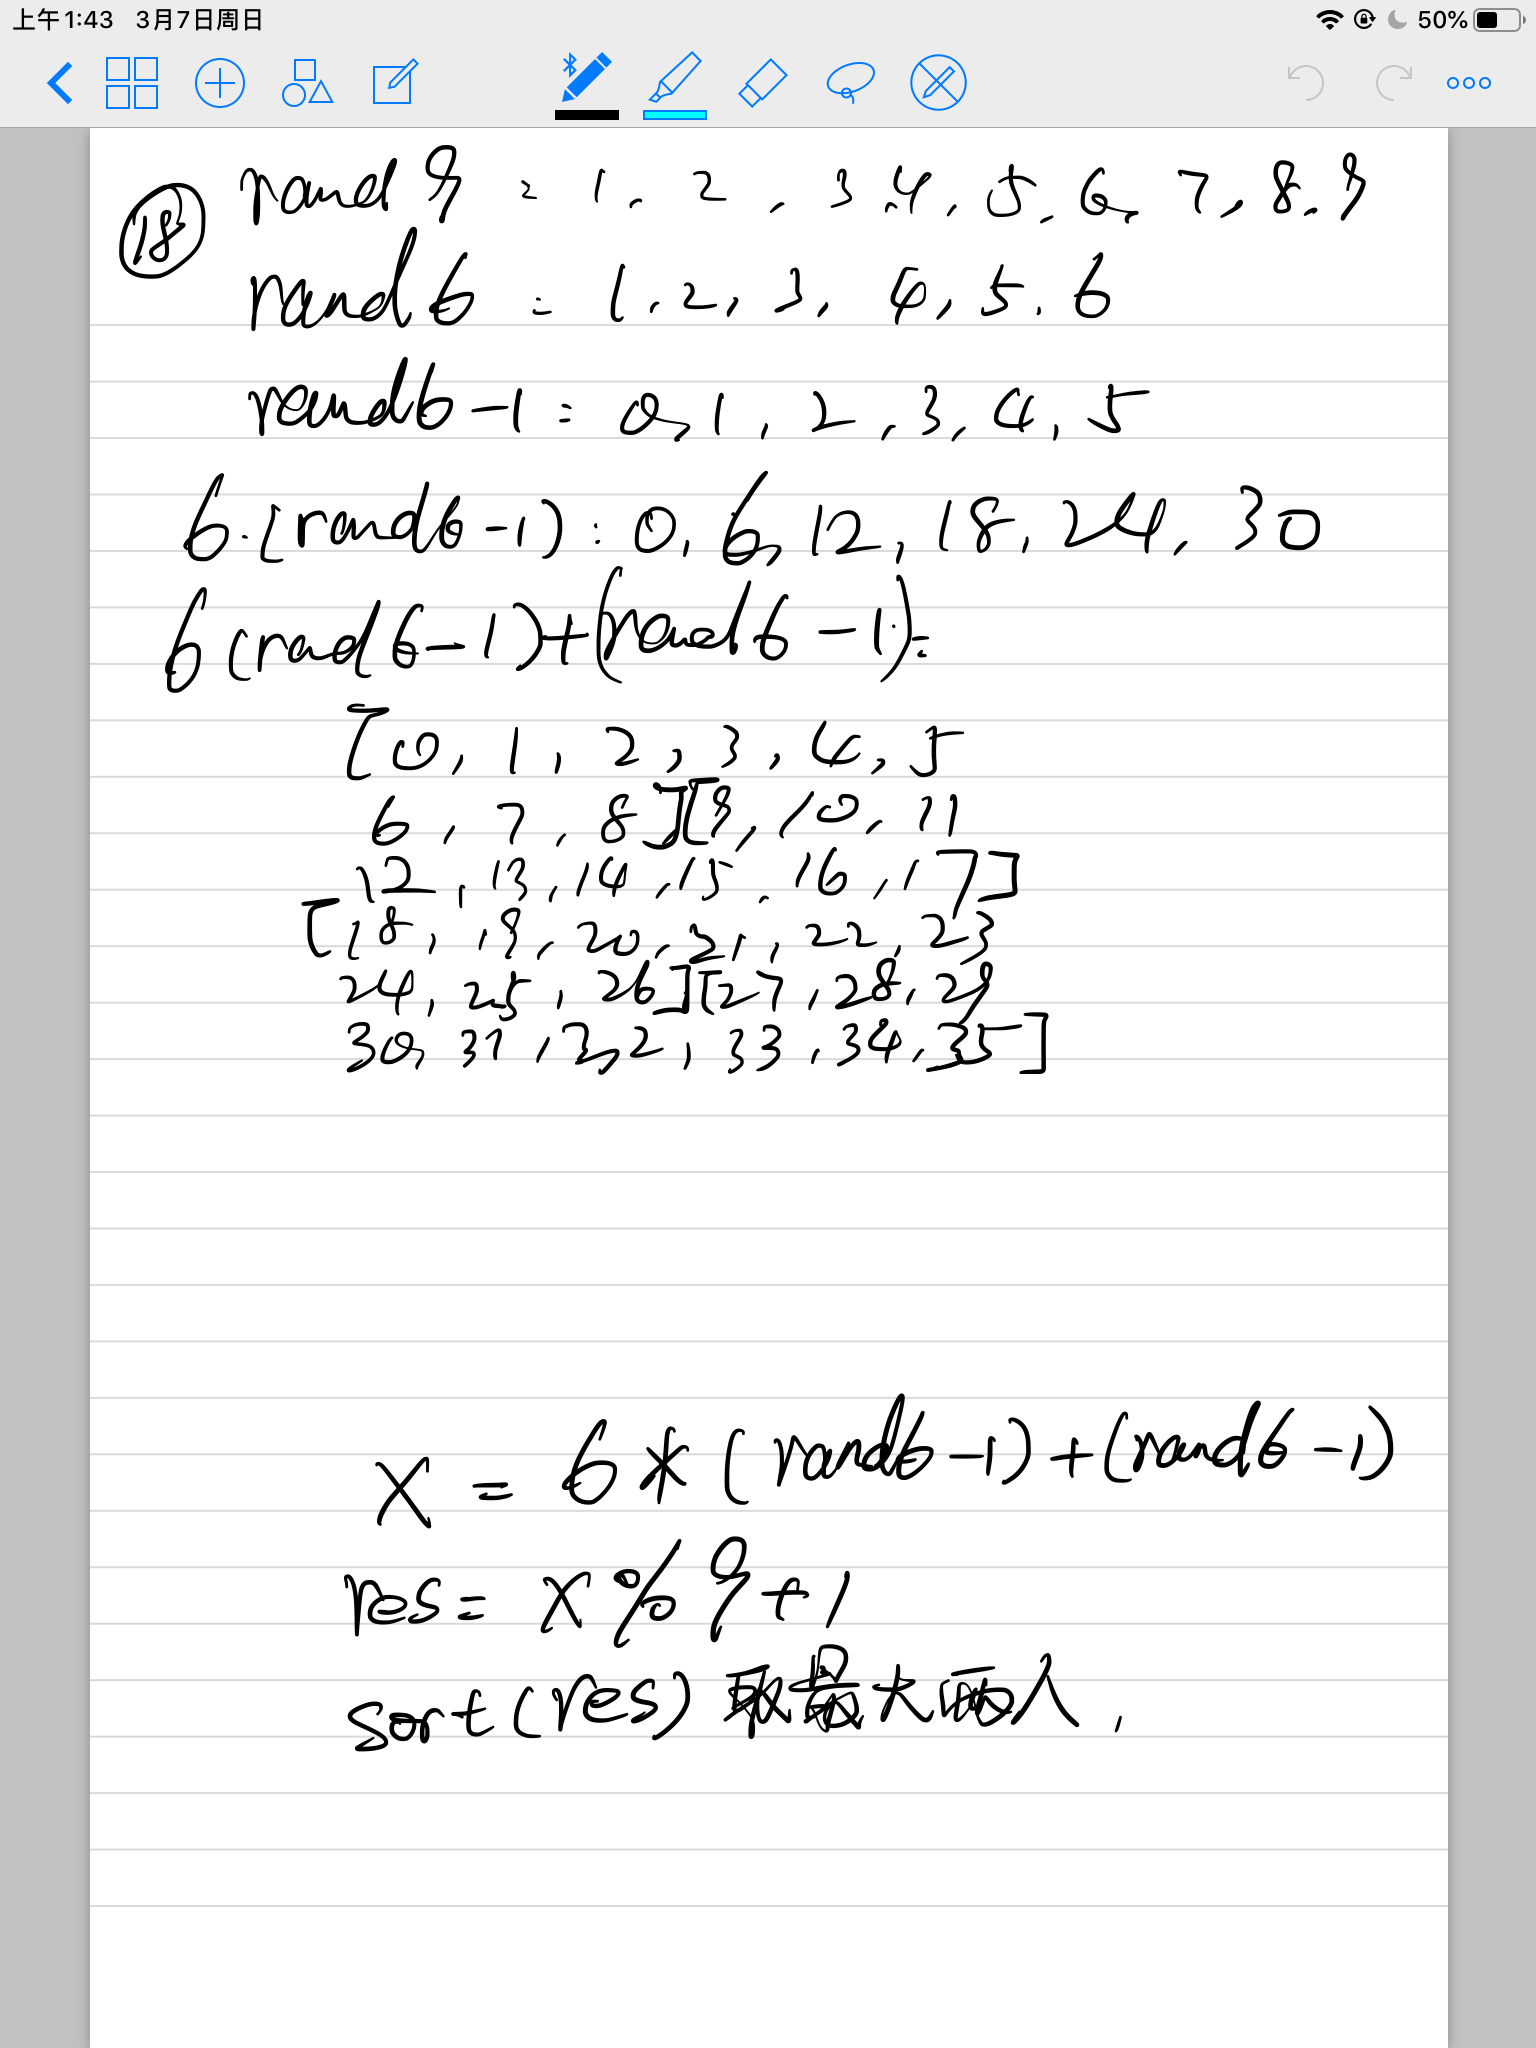 上午1:43 3月7日周日
50%
18 rand 9 = 1, 2, 3,4, 5, 6, 7, 8, 9
rand 6 = 1, 2, 3, 4, 5, 6
rand6-1 = 0, 1, 2, 3, 4, 5
6·(rand6-1): 0, 6, 12, 18, 24, 30
6(rad6-1)+(rand6-1)=
[0, 1, 2, 3, 4, 5
6, 7, 8][9, 10, 11
12, 13, 14, 15, 16, 17]
[18, 19, 20, 21, 22, 23
24, 25, 26][27, 28, 29
30, 31, 32, 33, 34, 35]
X = 6*(rand6-1)+(rand6-1)
res = X%9+1
sort(res) 取最大两人,